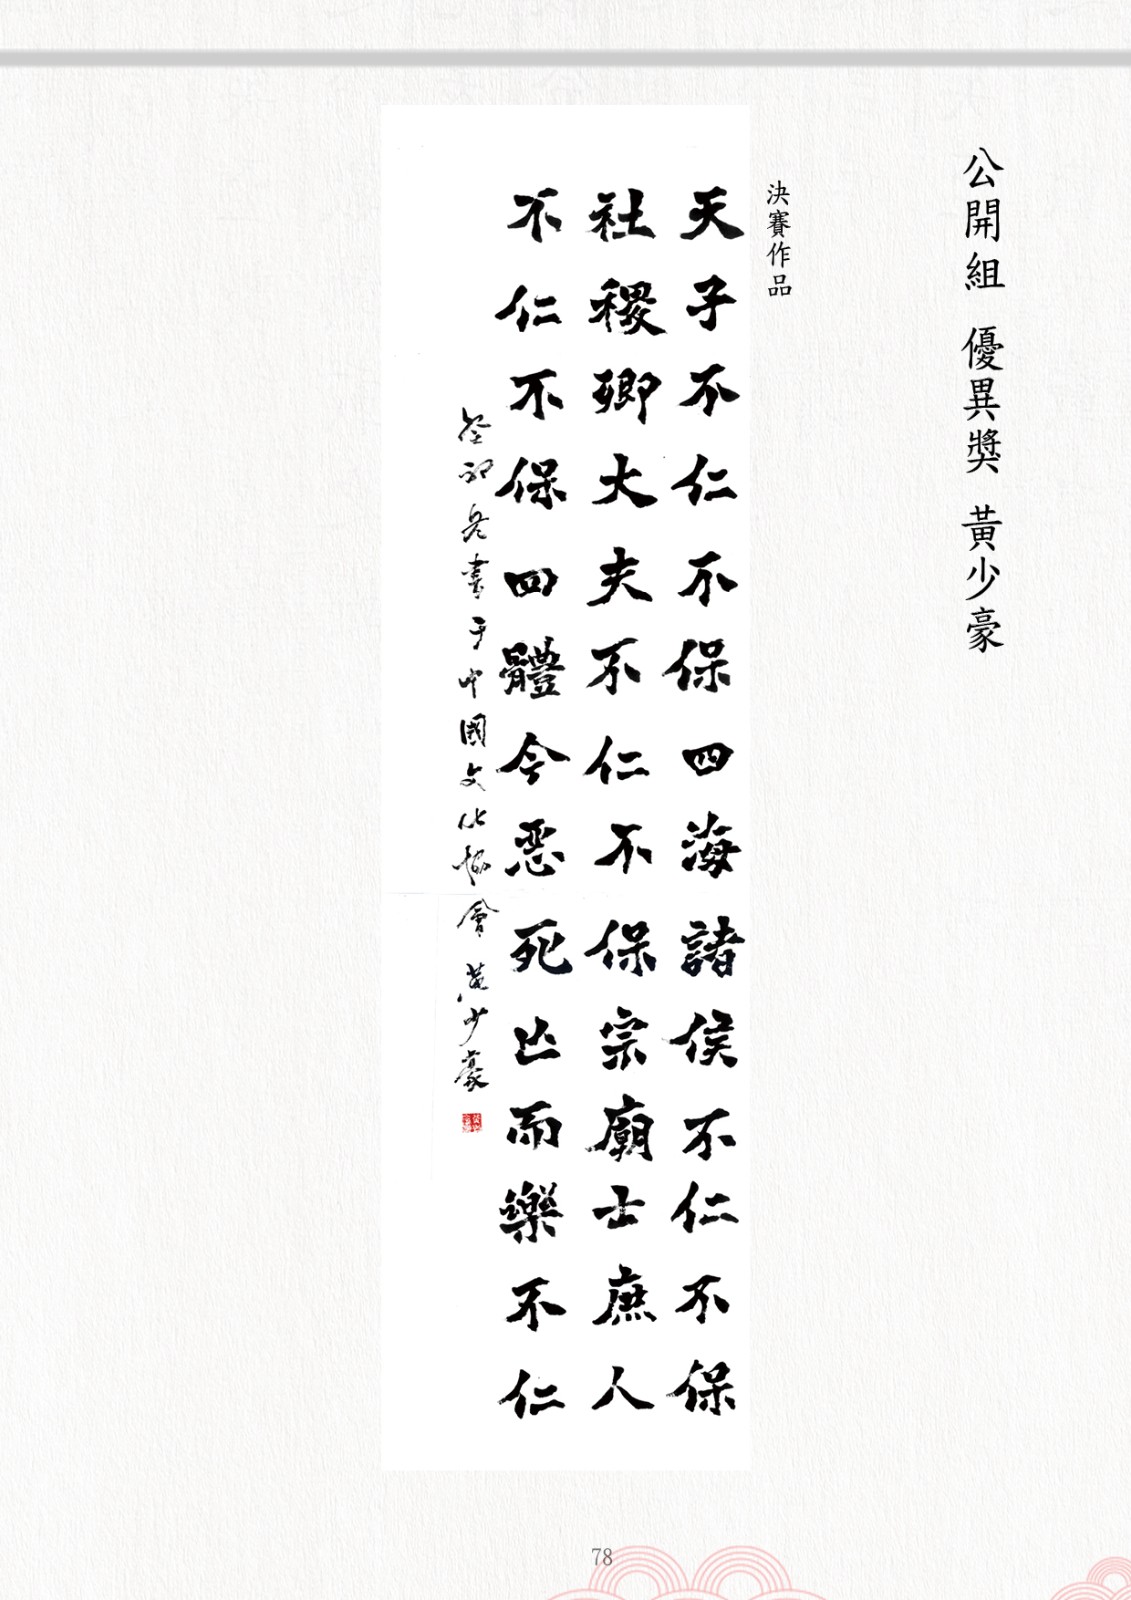 公開組 優異獎 黃少豪
決賽作品
天子不仁不保四海諸侯不仁不保
社稷卿大夫不仁不保宗廟士庶人
不仁不保四體今惡死亡而樂不仁
癸卯冬書于中國文化協會 黃少豪
78